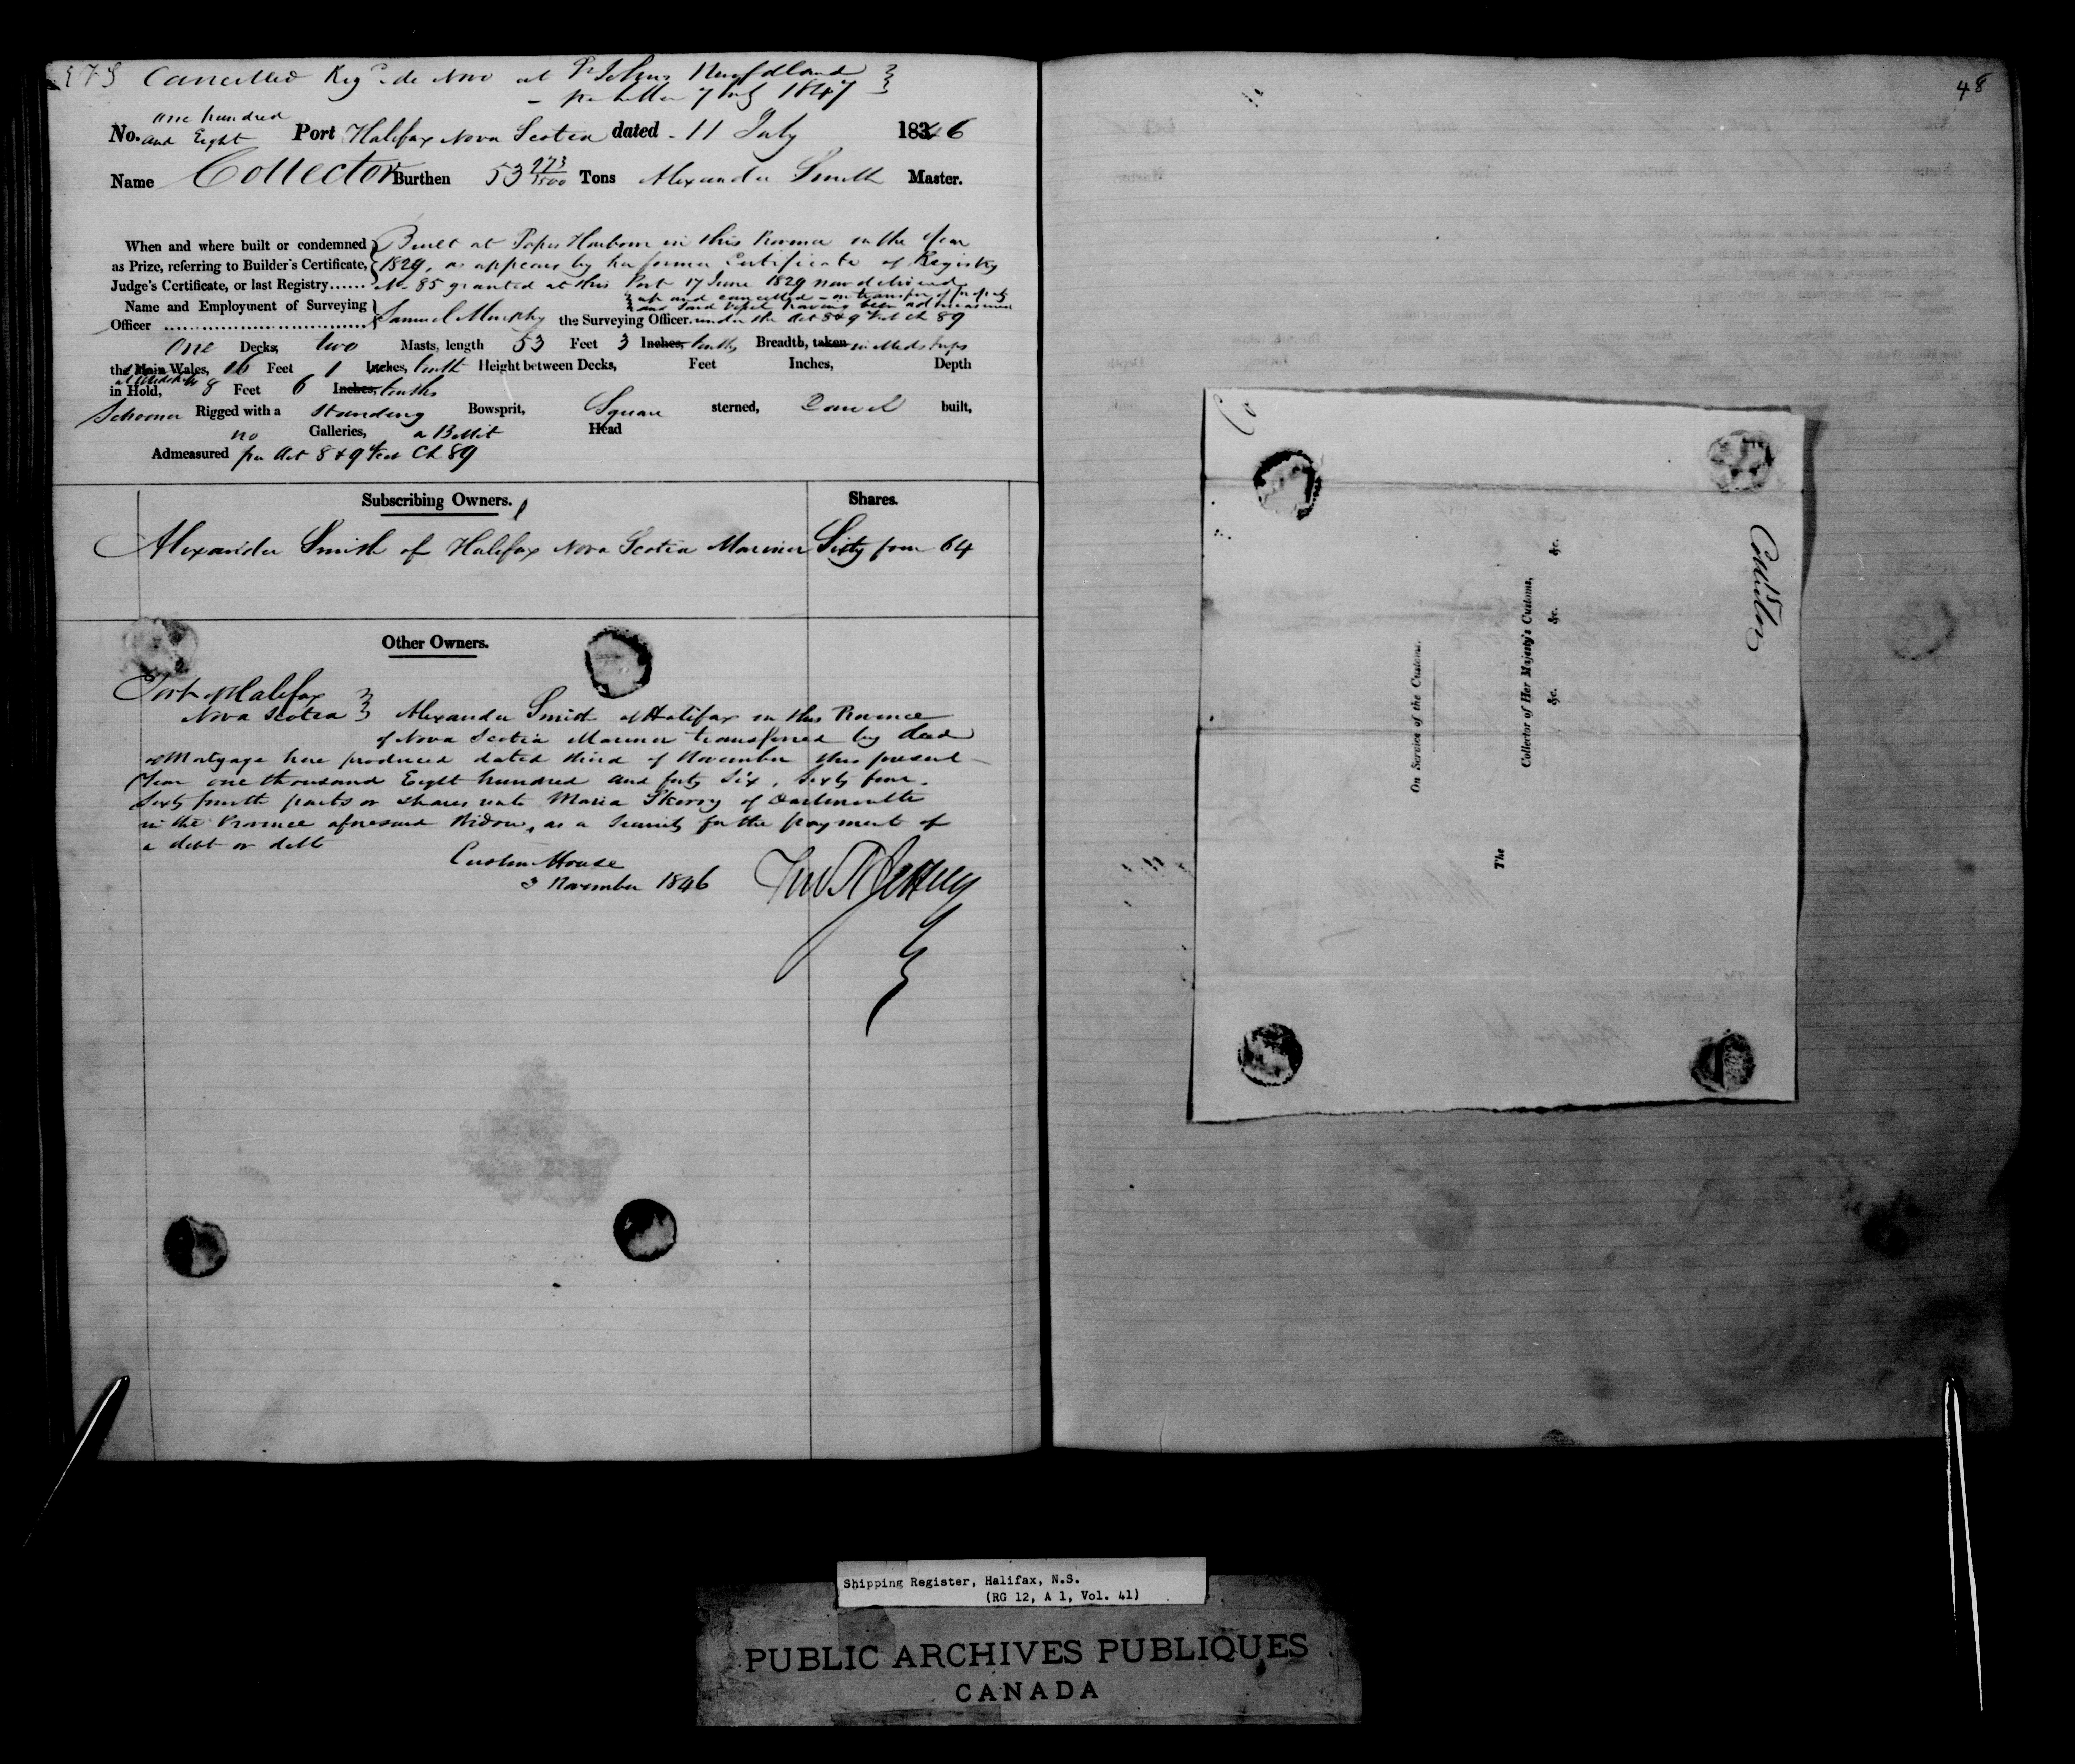 Cancelled Reg.d de Novo at St Johns Newfdland
per letter 7 July 1847
one hundred
No. and Eight Port Halifax Nova Scotia dated 11 July 1846
Name Collector Burthen 53 273/3500 Tons Alexander Smith Master.
When and where built or condemned Built at Popes Harbour in this Province in the Year
as Prize, referring to Builder's Certificate, 1829, as appears by her former Certificate of Registry
Judge's Certificate, or last Registry...... No 85 granted at this Port 17 June 1829 now delivered
up and cancelled - on transfer of property
Name and Employment of Surveying and said Vessel having been admeasured
Officer Samuel Murphy the Surveying Officer. under the Act 8 & 9 Vict Ch 89
One Decks, two Masts, length 53 Feet 3 Inches, tenths Breadth, taken in Midships
the Main Wales, 16 Feet 1 Inches, tenth Height between Decks, Feet Inches, Depth
at Midships
in Hold, 8 Feet 6 Inches, tenths
Schooner Rigged with a Standing Bowsprit, Square sterned, Carvel built,
no Galleries, a Billet Head
Admeasured per Act 8 & 9 Vict Ch 89
Subscribing Owners. Shares.
Alexander Smith of Halifax Nova Scotia Mariner Sixty four 64
Other Owners.
Port of Halifax
Nova Scotia Alexander Smith of Halifax in this Province
of Nova Scotia Mariner transferred by deed
of Mortgage here produced dated third of November this present
Year one thousand Eight hundred and forty Six, Sixty four
Sixty fourth parts or shares unto Maria Skerry of Dartmouth
in the Province aforesaid Widow, as a Security for the payment of
a debt or debts
Custom House
3 November 1846
48
Collector
On Service of the Customs.
The
Collector of Her Majesty's Customs,
&c. &c. &c.
Shipping Register, Halifax, N.S.
(RG 12, A 1, Vol. 41)
PUBLIC ARCHIVES PUBLIQUES
CANADA